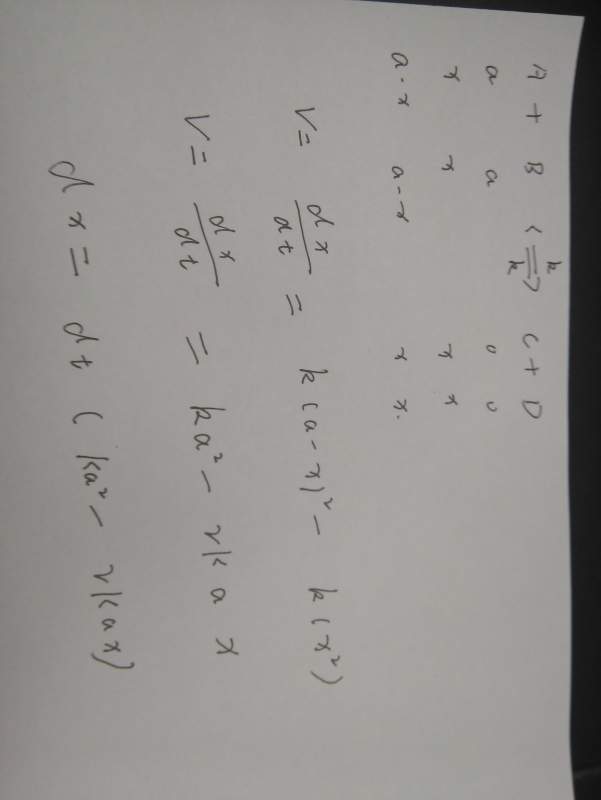 A + B ⇌ C + D
k
k
a a 0 0
x x x x
a-x a-x x x.
V = dx/dt = k(a-x)² - k(x²)
V = dx/dt = ka² - 2kax
dx = dt (ka² - 2kax)